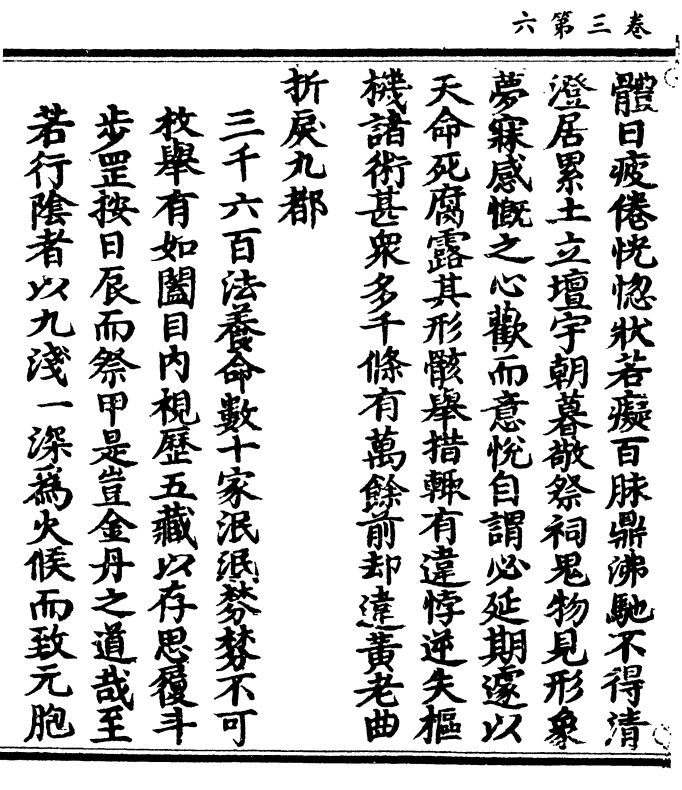 卷三第六
體日疲倦恍惚狀若癡百脉鼎沸馳不得清
澄居累土立壇宇朝暮敬祭祠鬼物見形象
夢寐感慨之心歡而意悅自謂必延期遽以
天命死腐露其形骸舉措輒有違悖逆失樞
機諸術甚衆多千條有萬餘前却違黃老曲
折戾九都
三千六百法養命數十家泯泯棼棼不可
枚舉有如闔目内視歷五藏以存思履斗
步罡按日辰而祭甲是豈金丹之道哉至
若行陰者以九淺一深爲火候而致元胞